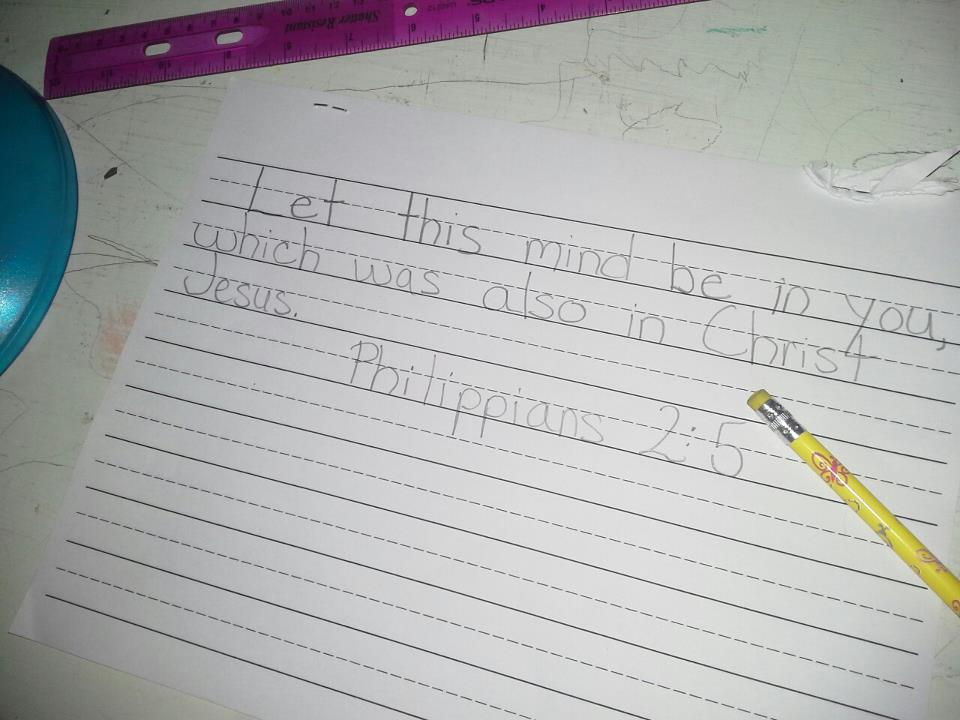 Shatter Resistant
Let this mind be in you,
which was also in Christ
Jesus.
Philippians 2:5